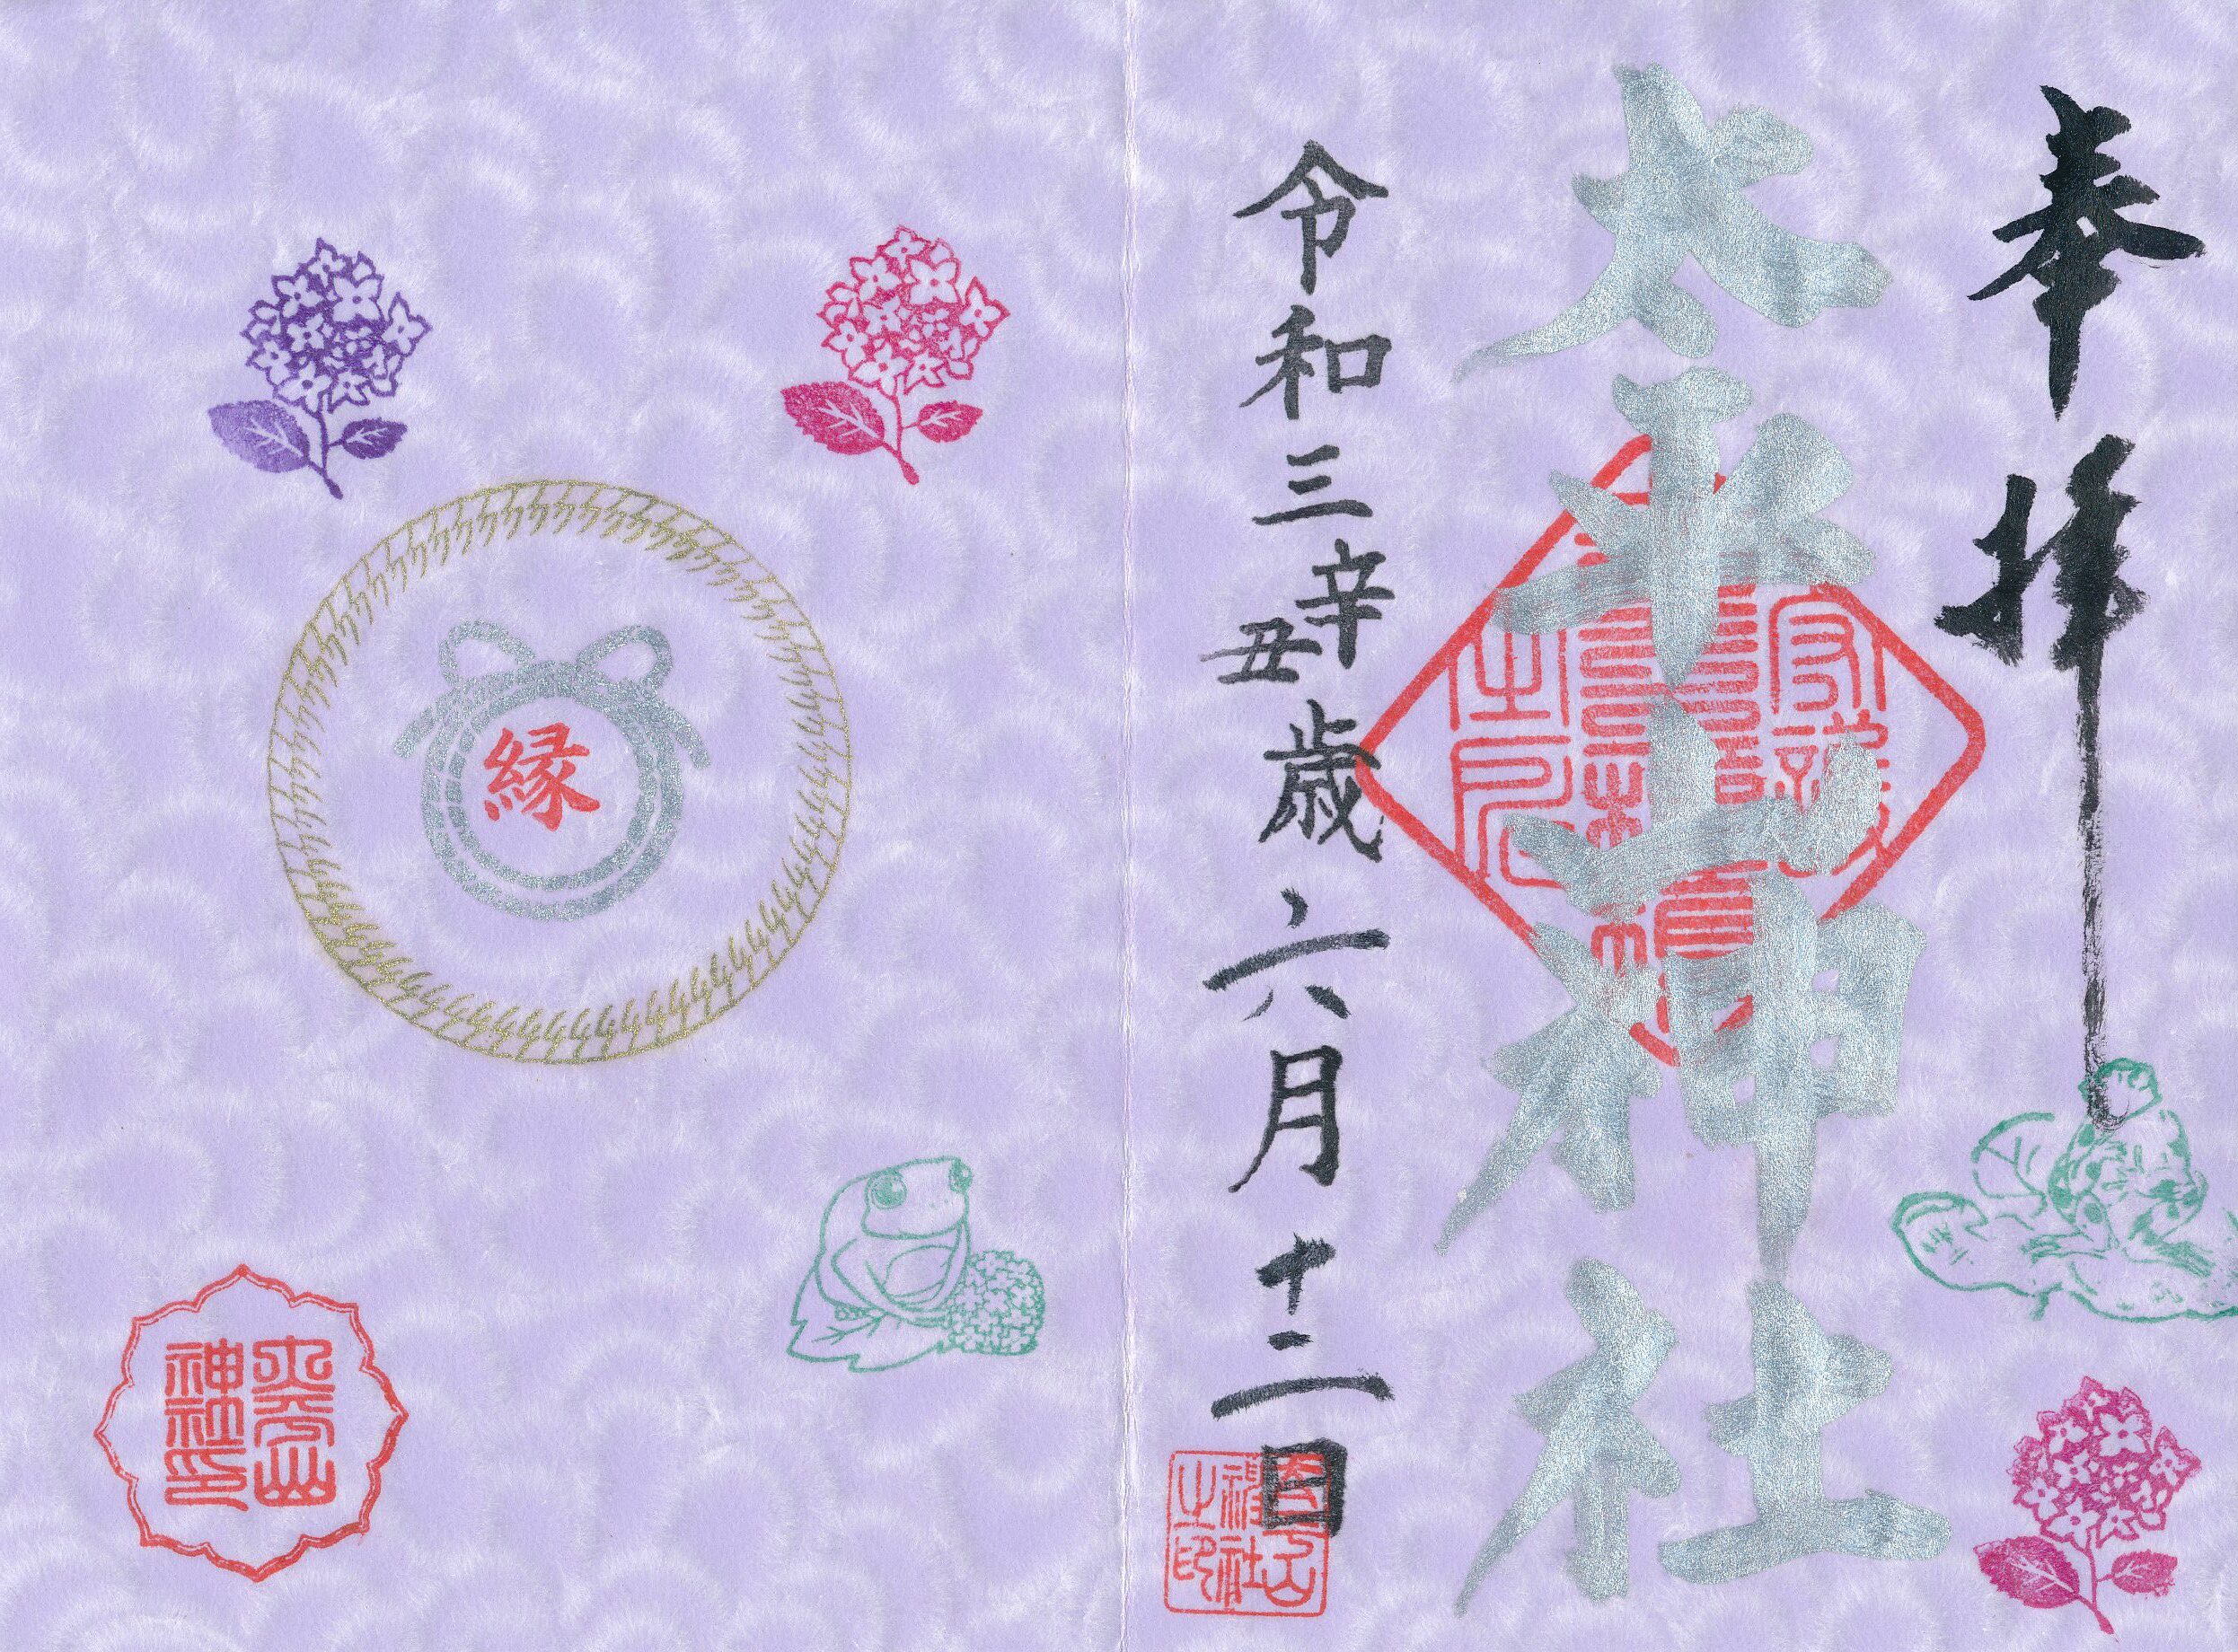 奉拝
太平山神社
令和三辛丑歳六月十二日
縁
太平山
神社印